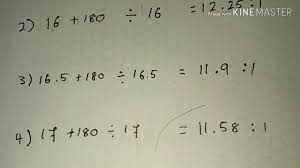 Made with KINEMASTER
2) 16 + 180 ÷ 16 = 12.25 : 1
3) 16.5 + 180 ÷ 16.5 = 11.9 : 1
4) 17 + 180 ÷ 17 = 11.58 : 1